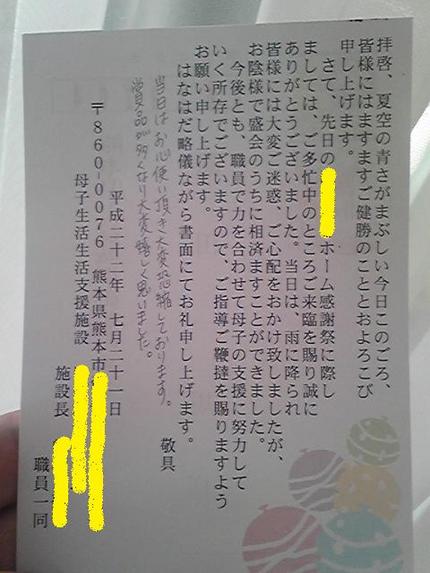 拝啓、夏空の青さがまぶしい今日このごろ、
皆様にはますますご健勝のこととおよろこび
申し上げます。
さて、先日の
ホーム感謝祭に際し
ましては、ご多忙中のところご来臨を賜り誠に
ありがとうございました。当日は、雨に降られ
皆様には大変ご迷惑、ご心配をおかけ致しましたが、
お陰様で盛会のうちに相済ますことができました。
今後とも、職員で力を合わせて母子の支援に努力して
いく所存でございますので、ご指導ご鞭撻を賜りますよう
お願い申し上げます。
はなはだ略儀ながら書面にてお礼申し上げます。
敬具
当日はお心使い頂き大変恐縮しております。
賞品が多くなり大変嬉しく思いました。
平成二十二年 七月二十一日
〒860-0076 熊本県熊本市
母子生活生活支援施設
施設長
職員一同